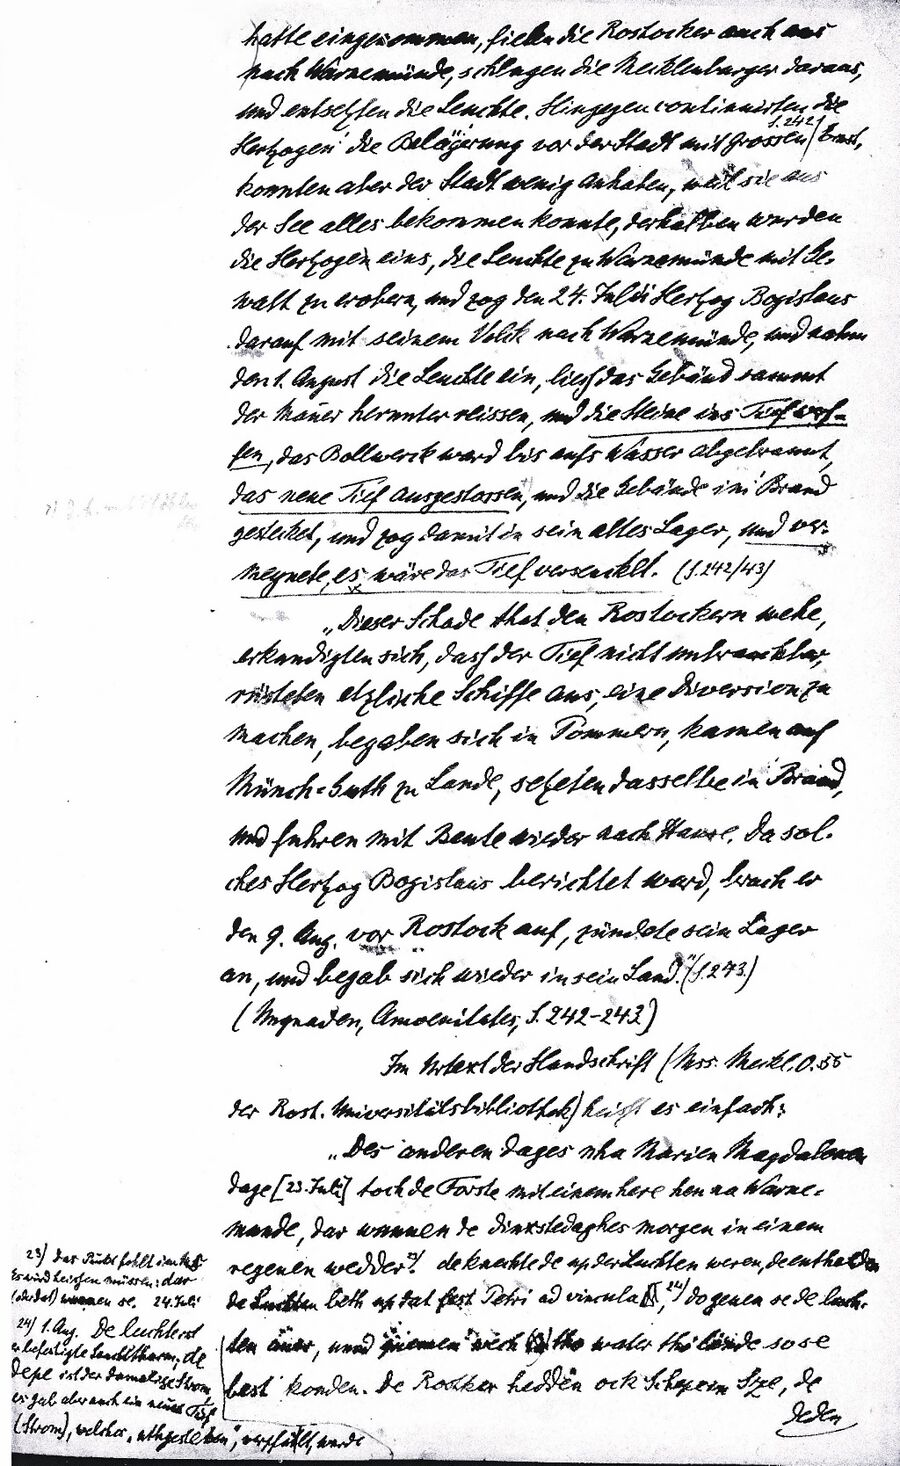 hatte eingenommen, fielen die Rostocker auch aus
nach Warnemünde, schlugen die Mecklenburger daraus,
und entsetzten die Leuchte. Hingegen continuirten die
Hertzogen die Belägerung vor der Stadt mit grossen /S.242/ Ernst,
konnten aber der Stadt wenig anhaben, weil sie aus
der See alles bekommen konnte, derhalben wurden
die Hertzogen eins, die Leuchte zu Warnemünde mit Ge-
walt zu erobern, und zog den 24. Julii Hertzog Bogislaus
darauf mit seinem Volck nach Warnemünde, und nahm
den 1. August die Leuchte ein, liess das Gebäud sammt
der Mauer herunter reissen, und die Steine ins Tief werf-
fen, das Bollwerck ward bis aufs Wasser abgebrannt,
das neue Tief ausgestossen, und die Gebäude in Brand
gestecket, und zog damit in sein altes Lager, und ver-
meynete, es wäre das Tief versenckt. (S.242/43)
„Dieser Schade that den Rostockern wehe,
erkundigten sich, dass der Tief nicht unbrauchbar,
rüsteten etzliche Schiffe aus, eine Diversion zu
machen, begaben sich in Pommern, kamen auf
Münch-Guth zu Lande, setzeten dasselbe in Brand,
und fuhren mit Beute wieder nach Hause. Da sol-
ches Hertzog Bogislaus berichtet ward, brach er
den 9. Aug. vor Rostock auf, zündete sein Lager
an, und begab sich wieder in sein Land." (S.243)
(Ungnaden, Amoenitates, S. 242-243)
Im Urtext der Handschrift (Mss. Meckl. O. 55
der Rost. Universitätsbibliothek) heisst es einfach:
„Des anderen dages nha Marien Magdalenen
dage [23. Juli] toch de Forste mit einem here hen na Warne-
munde, dar wunnen de dinxstedaghes morgen in einem
regenen wedder 23/ de knechte de up der Luchten weren, de entholden
de Luchten beth up dat fest Petri ad vincula 24/ do geuen se de luch-
ten auer, unnd quemen sich tho water tho lande so se
best konden. De Rostker hedden ock Schepe in See, de
deden
23/ das Subst fehlt im
Es wird heissen müssen: dar
(oder dat) wunnen se. 24. Juli
24/ 1. Aug. De luchte ist
befestigte Leuchtturm; de
depe ist der damalige Strom
es gab aber auch ein neues Tief
(Strom), welches verpfählt wurde